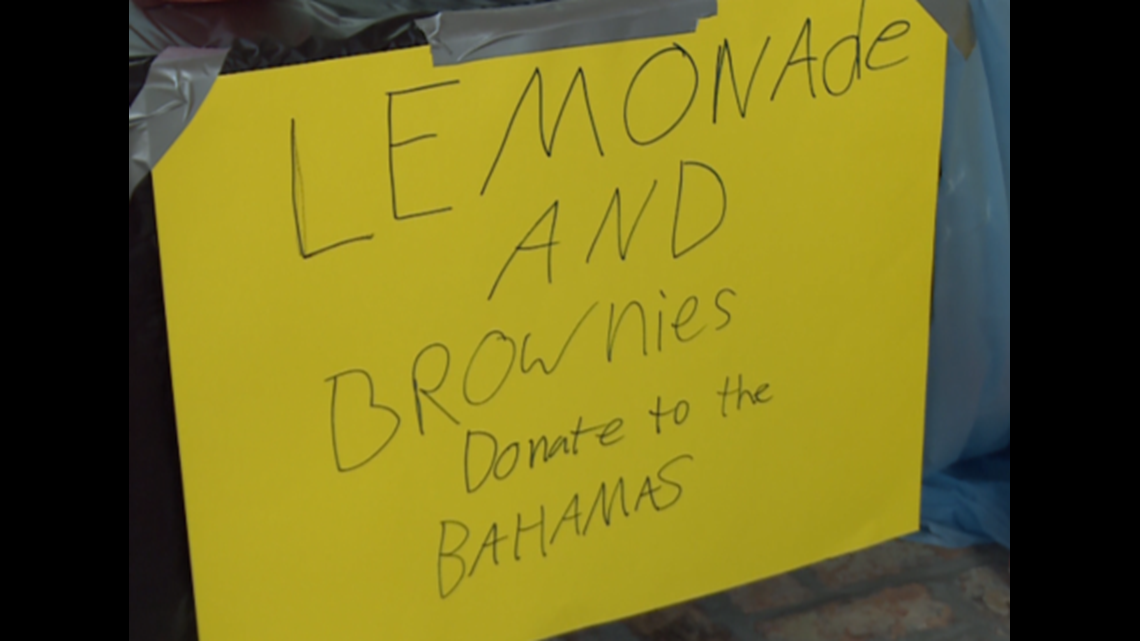 LEMONAde
AND
BROwnies
Donate to the
BAHAMAS